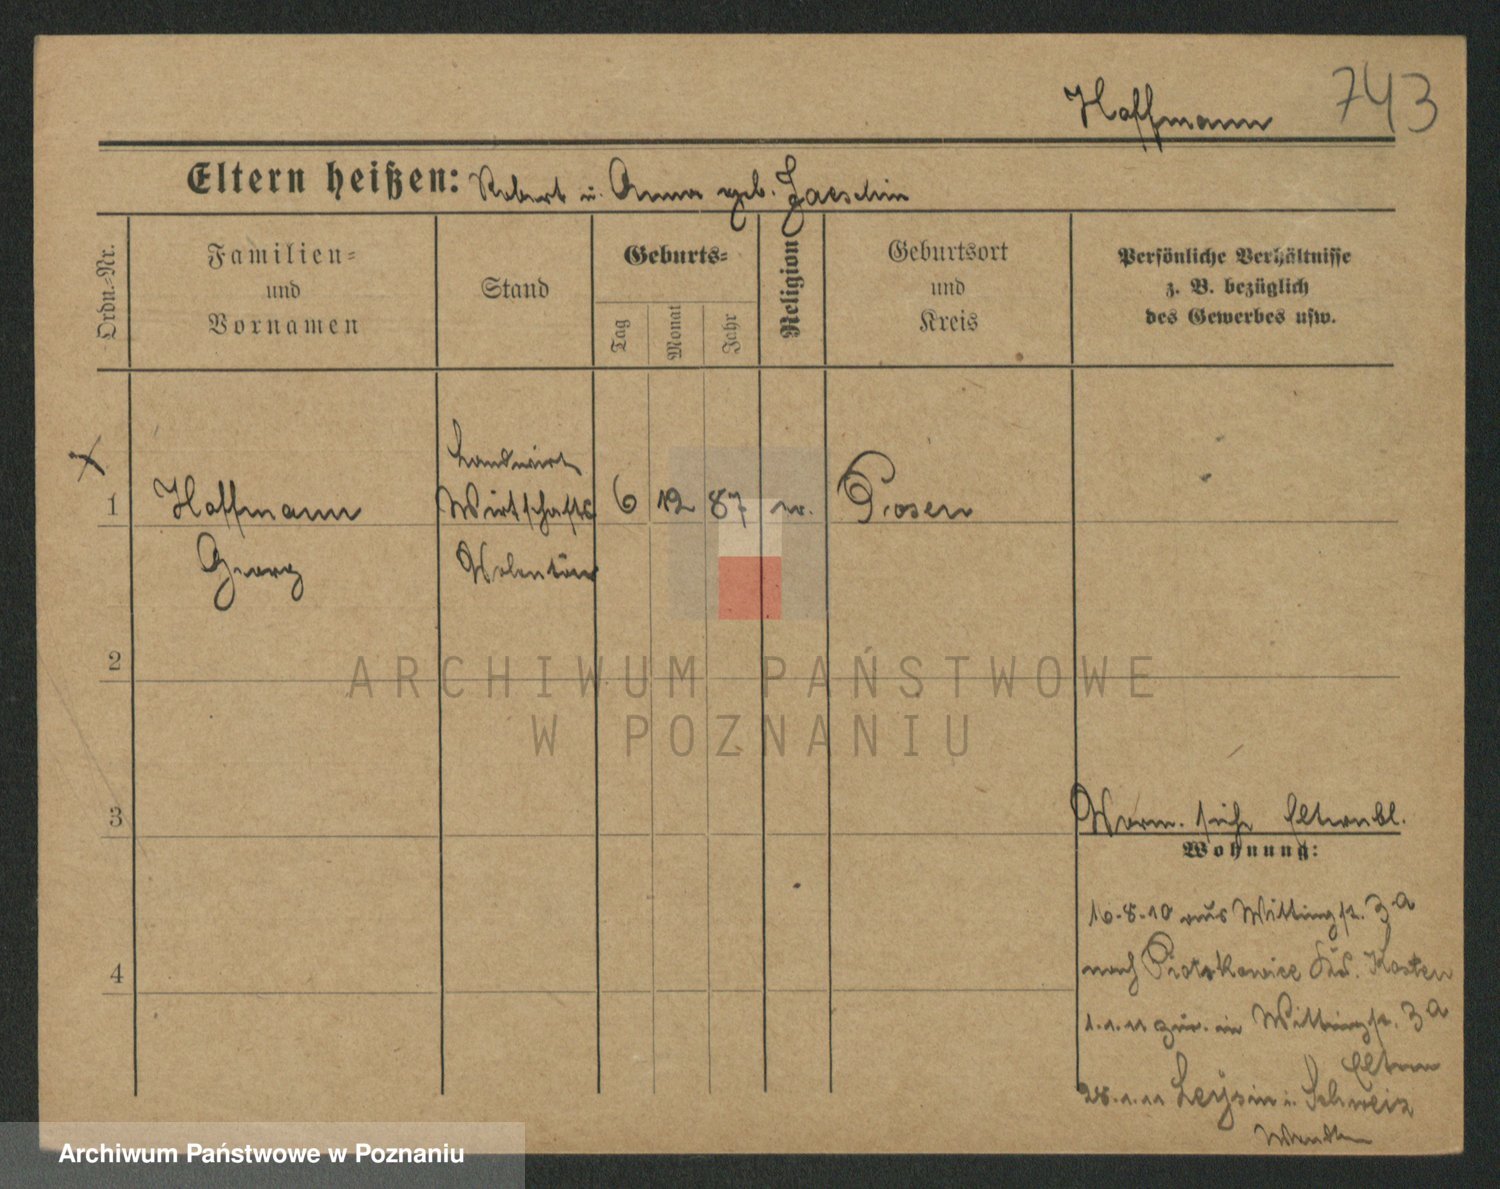 Hoffmann 743
Eltern heißen: Robert u. Anna geb. Jaeschin
Ordn.-Nr.
Familien-
und
Vornamen
Stand
Geburts-
Tag
Monat
Jahr
Religion
Geburtsort
und
Kreis
Persönliche Verhältnisse
z. B. bezüglich
des Gewerbes usw.
Landwirt
1 Hoffmann Wirtschafts 6 12 87 Posen
Georg Volontär
2
3
Norm. siehe Elternbl.
Wohnung:
16.8.10 aus Wittingstr. 3a
4
nach Piotrkowice Kosten
1.1.11 zur. in Wittingstr. 3a
Eltern
28.1.11 Leysin i. Schweiz
ARCHIWUM PAŃSTWOWE
W POZNANIU
Archiwum Państwowe w Poznaniu